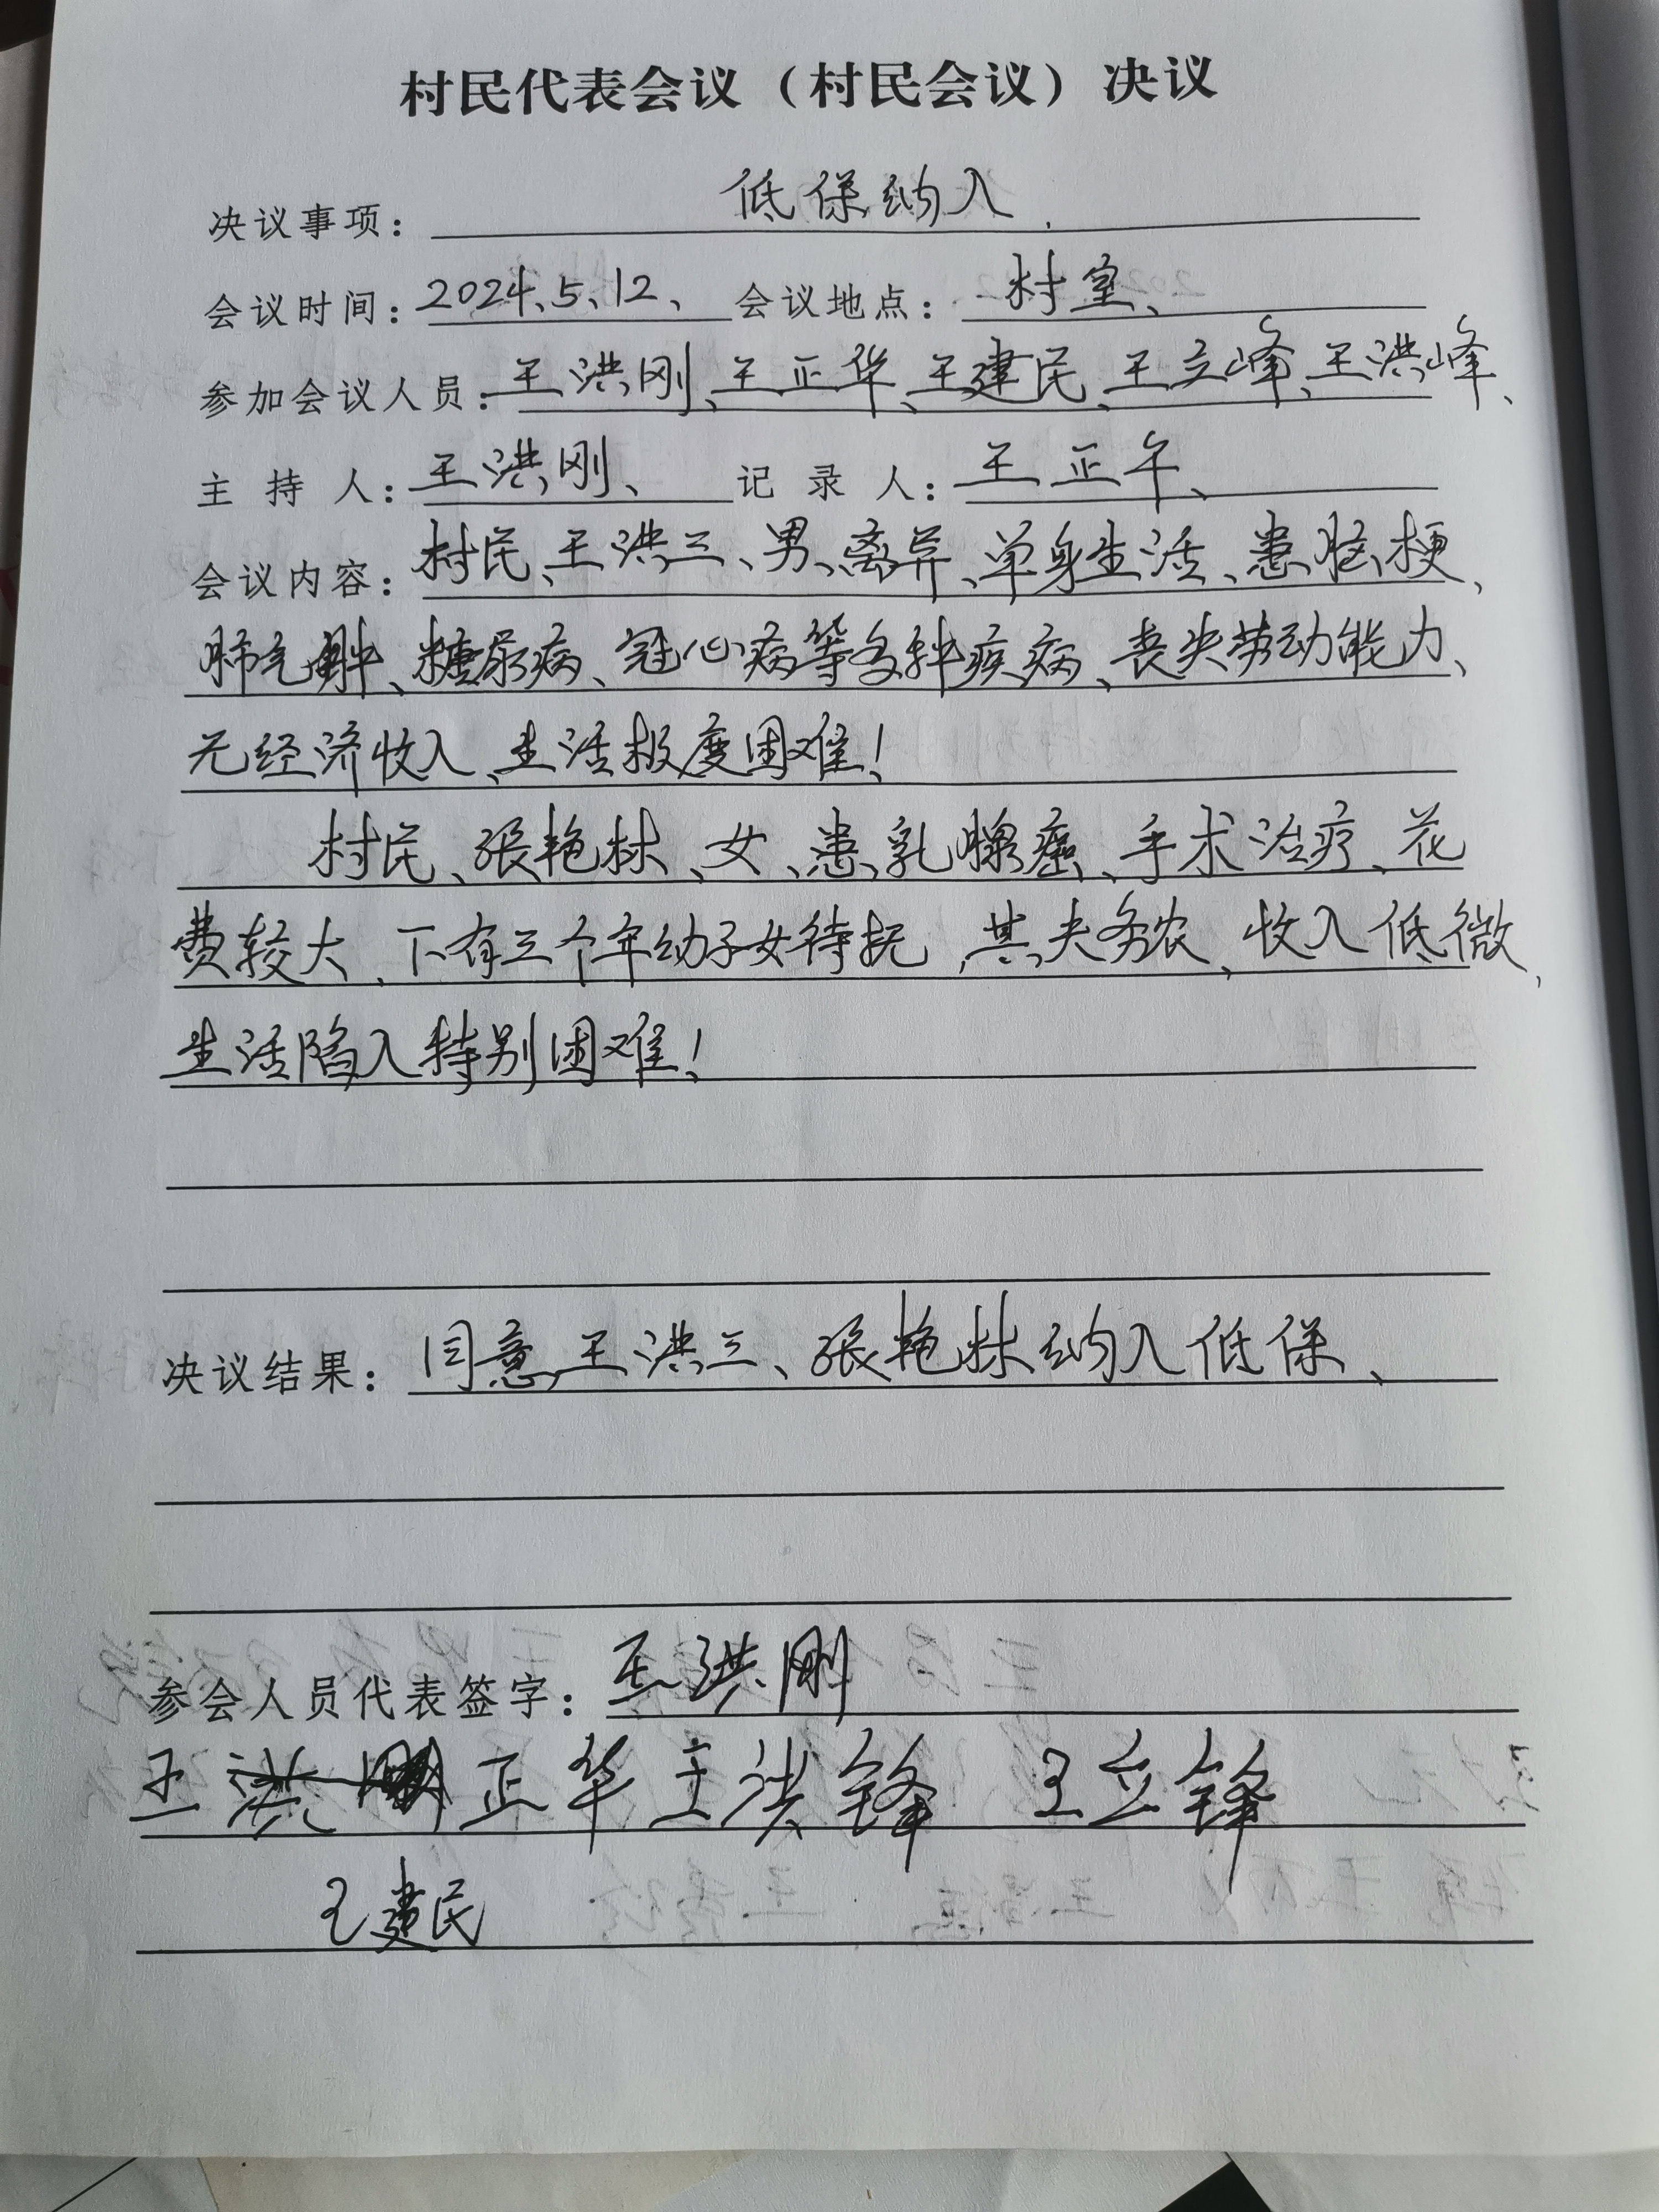 村民代表会议（村民会议）决议
决议事项： 低保纳入、
会议时间：2024、5、12、 会议地点：村室、
参加会议人员：王洪刚、王正华、王建民、王立峰、王洪峰、
主 持 人：王洪刚、 记 录 人：王正午、
会议内容：村民、王洪三、男、离异、单身生活、患脑梗、
肺气肿、糖尿病、冠心病等多种疾病、丧失劳动能力、
无经济收入、生活极度困难！
村民、张艳林、女、患乳腺癌、手术治疗、花
费较大、下有三个年幼子女待抚，其夫务农，收入低微，
生活陷入特别困难！
决议结果：同意王洪三、张艳林纳入低保、
参会人员代表签字：王洪刚
王 正华 王洪锋 王立锋
王建民